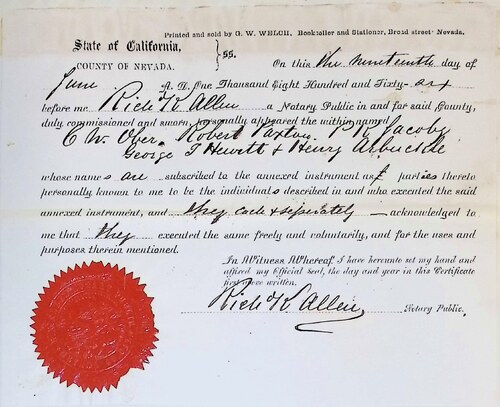 Printed and sold by G. W. WELCH, Bookseller and Stationer, Broad street Nevada.
State of California, } ss.
COUNTY OF NEVADA.
On this the nineteenth day of
June A. D. One Thousand Eight Hundred and Sixty-six
before me Rich K. Allen a Notary Public in and for said County,
duly commissioned and sworn, personally appeared the within named
C W. Robert Paxton. P K Jacoby
George T Hewitt & Henry Arbuckle
whose names are subscribed to the annexed instrument as parties thereto
personally known to me to be the individuals described in and who executed the said
annexed instrument, and they each & seperately acknowledged to
me that they executed the same freely and voluntarily, and for the uses and
purposes therein mentioned.
In Witness Whereof, I have hereunto set my hand and
affixed my Official Seal, the day and year in this Certificate
first above written.
Rich K. Allen, Notary Public.